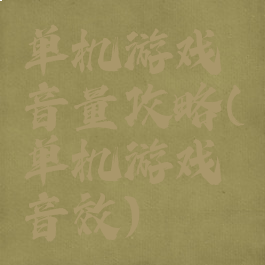 单机游戏
音量攻略(
单机游戏
音效)